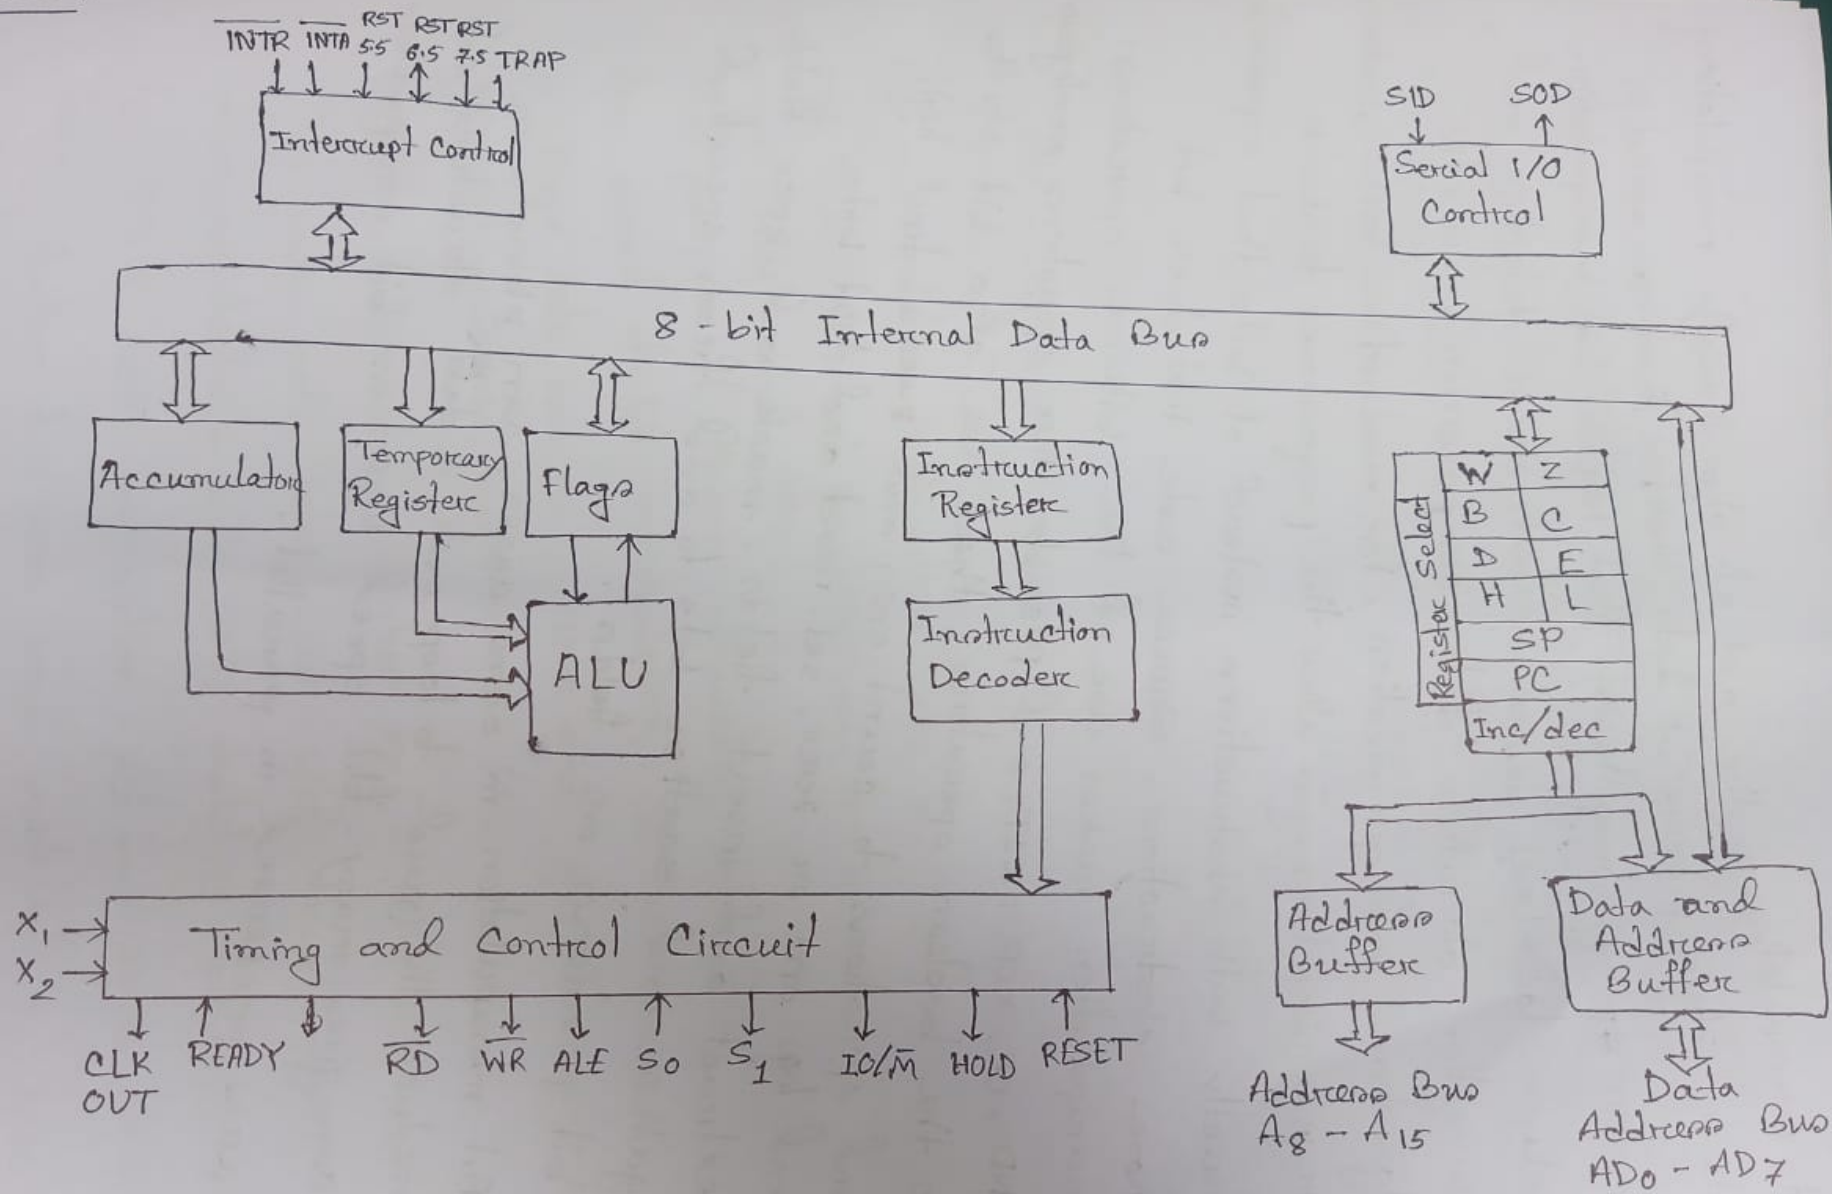 INTR INTA RST 5.5 RST 6.5 RST 7.5 TRAP
Interrupt Control
SID SOD
Serial I/O
Control
8-bit Internal Data Bus
Accumulator
Temporary
Register
Flags
ALU
Instruction
Register
Instruction
Decoder
Register Select
W Z
B C
D E
H L
SP
PC
Inc/dec
X1
X2
Timing and Control Circuit
CLK
OUT
READY
RD
WR
ALE
S0
S1
IO/M̅
HOLD
RESET
Address
Buffer
Data and
Address
Buffer
Address Bus
A8 - A15
Data
Address Bus
AD0 - AD7